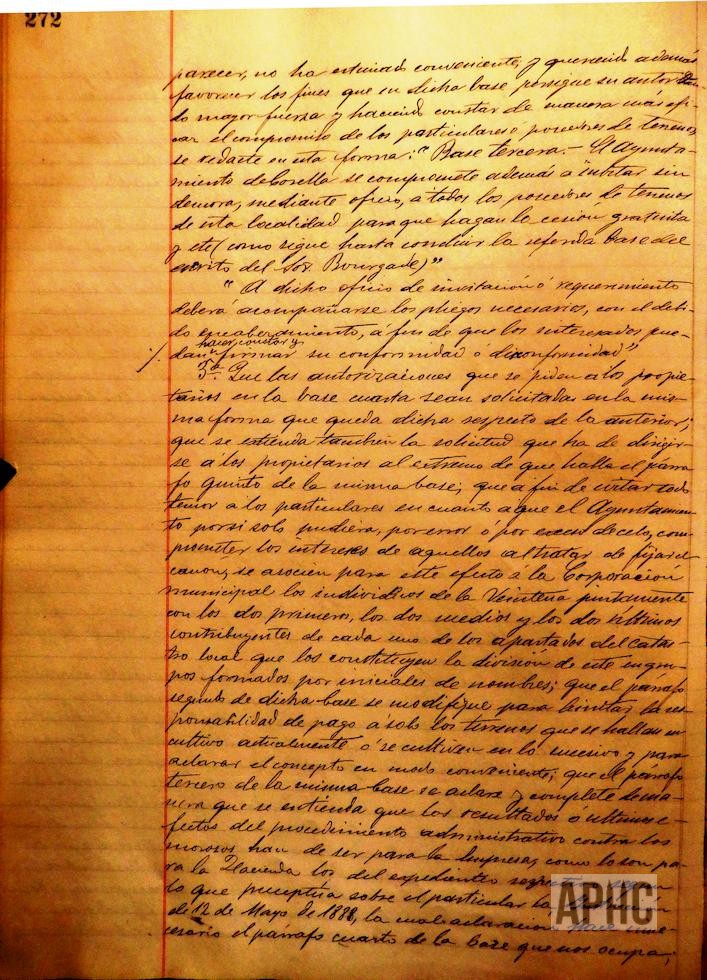 272
parecer, no ha estimado conveniente, y queriendo además
favorecer los fines que en dicha base persigue su autor dan-
do mayor fuerza y haciendo constar de manera más efi-
caz el compromiso de los particulares o poseedores de terrenos
se redacte en esta forma: "Base tercera. - El Ayunta-
miento de Borella se compromete además a invitar sin
demora, mediante oficio, a todos los poseedores de terrenos
de esta localidad para que hagan la cesión gratuita
y etc (como sigue hasta concluir la referida base del
escrito del Sor. Bourgade)"
"A dicho oficio de invitación ó requerimiento
deberá acompañarse los pliegos necesarios, con el debi-
do encabezamiento, á fin de que los interesados pue-
hacer constar y
dan firmar su conformidad ó disconformidad"
5ª. Que las autorizaciones que se piden a los propie-
tarios en la base cuarta sean solicitadas en la mis-
ma forma que queda dicha respecto de la anterior;
que se extienda tambien la solicitud que ha de dirigir-
se a los propietarios al extremo de que habla el párra-
fo quinto de la misma base; que á fin de evitar todo
temor a los particulares en cuanto a que el Ayuntamien-
to por si solo pudiera, por error ó por exceso de celo, com-
prometer los intereses de aquellos al tratar de fijar el
canon, se asocien para este efecto á la Corporación
municipal los individuos de la Veintena juntamente
con los dos primeros, los dos medios y los dos ultimos
contribuyentes de cada uno de los apartados del Catas-
tro local que los constituyen la división de este en gru-
pos formados por iniciales de nombres; que el párrafo
segundo de dicha base se modifique para limitar la res-
ponsabilidad de pago a solo los terrenos que se hallan en
cultivo actualmente o se cultiven en lo sucesivo y para
aclarar el concepto en modo conveniente; que el párrafo
tercero de la misma base se aclare y complete de ma-
nera que se entienda que los resultados o ultimos e-
fectos del procedimiento administrativo contra los
morosos han de ser para la Empresa, como lo son pa-
ra la Hacienda los del expediente
lo que preceptúa sobre el particular la
de 12 de Mayo de 1888, la cual aclaración hace inne-
cesario el párrafo cuarto de la base que nos ocupa;
APHC